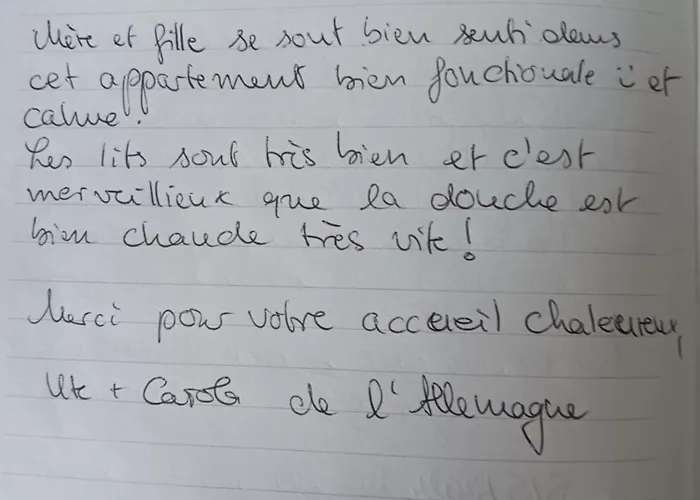 Mère et fille se sont bien senti dans
cet appartement bien fonctionale et
calme!
Les lits sont très bien et c'est
merveillieux que la douche est
bien chaude très vite!
Merci pour votre acceueil chaleureux,
Ute + Carola de l'Allemagne